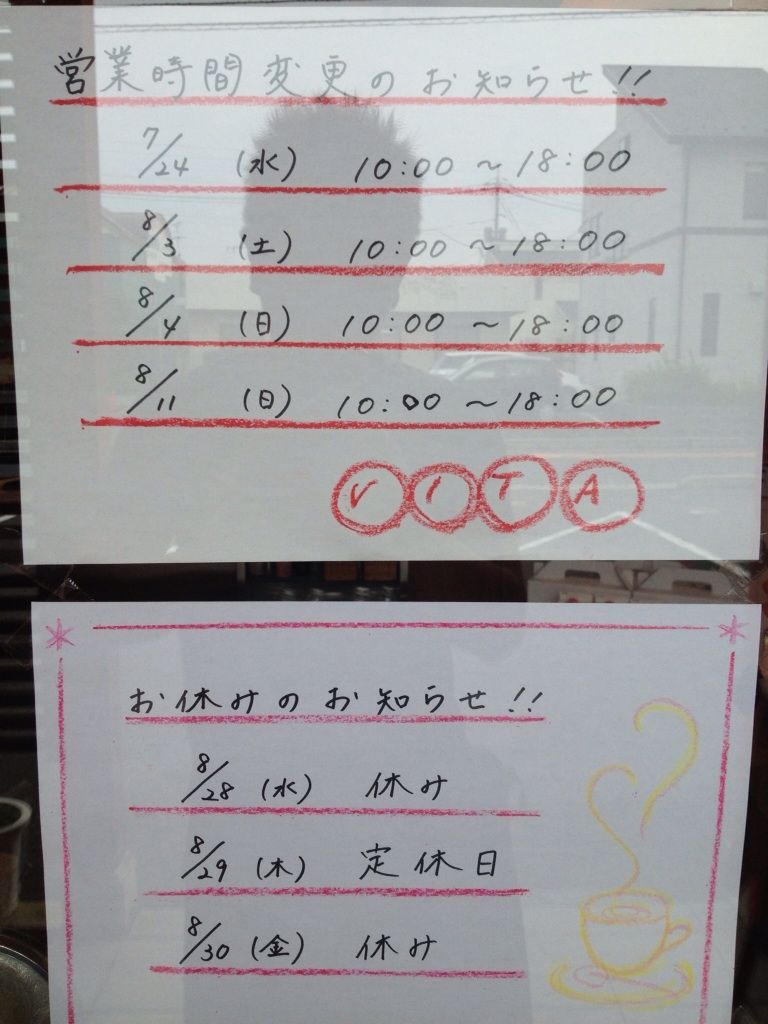 営業時間変更のお知らせ!!
7/24 (水) 10:00 ~ 18:00
8/3 (土) 10:00 ~ 18:00
8/4 (日) 10:00 ~ 18:00
8/11 (日) 10:00 ~ 18:00
VITA
お休みのお知らせ!!
8/28 (水) 休み
8/29 (木) 定休日
8/30 (金) 休み